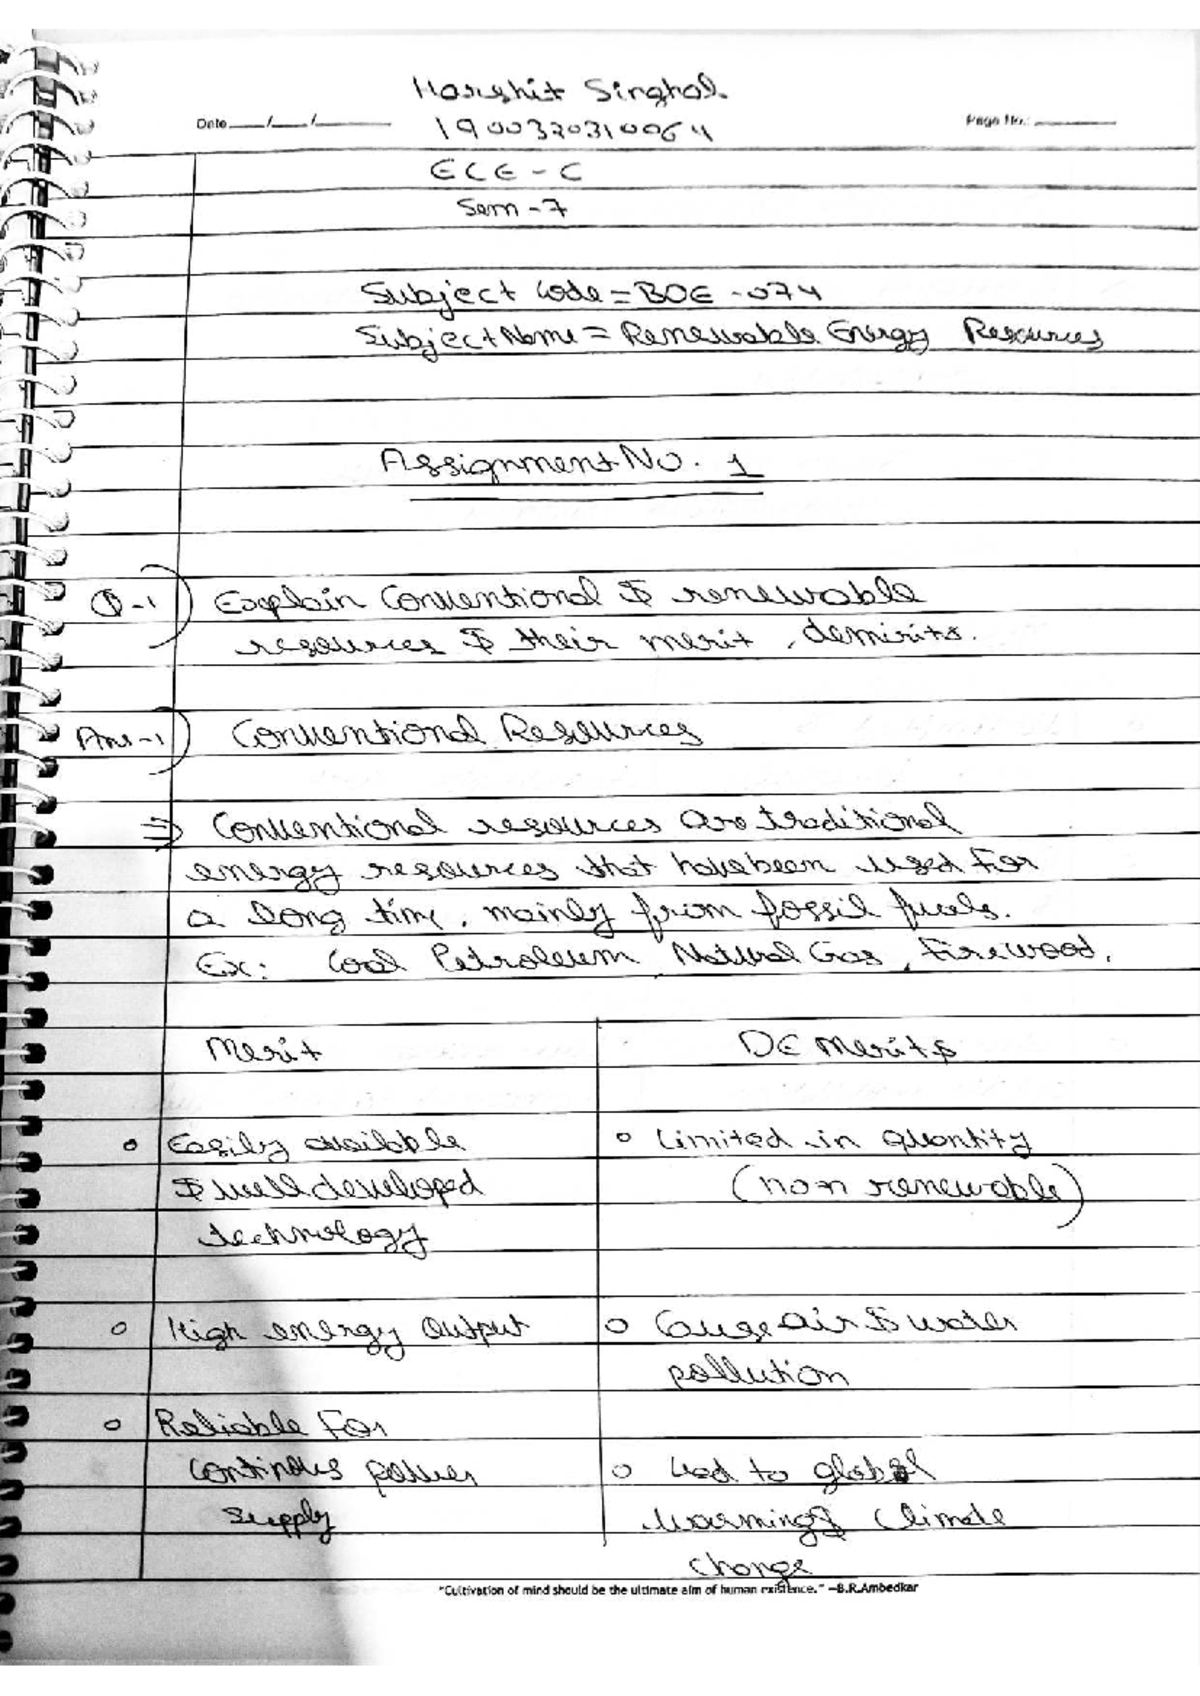 Harshit Singhal.
Date ___/___/______ Page No.: ________
1900320310064
ECE - C
Sem - 7
Subject Code = BOE - 074
Subject Name = Renewable Energy Resources
Assignment No. 1
Q-1) Explain Conventional & renewable
resources & their merit, demirits.
Ans-1) Conventional Resources
⇒ Conventional resources are traditional
energy resources that have been used for
a long time, mainly from fossil fuels.
Ex: Coal Petroleum, Natural Gas, Firewood.
Merit
DE Merits
o Easily available
& well developed
technology
o High energy Output
o Reliable For
Continous power
supply
o Limited in quantity
(non renewable)
o Cause air & water
pollution
o Led to global
warming & Climate
change
"Cultivation of mind should be the ultimate aim of human existence." —B.R.Ambedkar